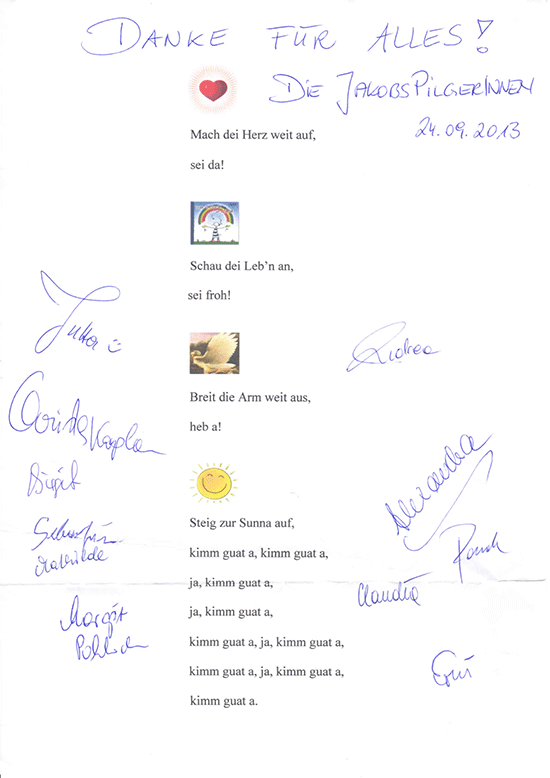 DANKE FÜR ALLES!
DIE JAKOBSPILGERINNEN
24.09.2013
Mach dei Herz weit auf,
sei da!
Schau dei Leb’n an,
sei froh!
Jutta
Andrea
Breit die Arm weit aus,
heb a!
Birgit
Alexandra
Steig zur Sunna auf,
kimm guat a, kimm guat a,
Mathilde
ja, kimm guat a,
Claudia
ja, kimm guat a,
Margit
kimm guat a, ja, kimm guat a,
kimm guat a, ja, kimm guat a,
kimm guat a.